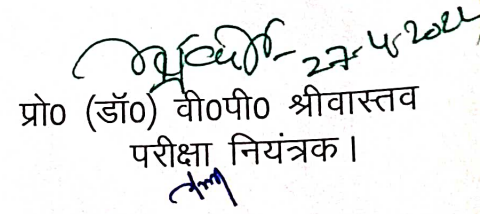 27-4-2024
प्रो0 (डॉ0) वी0पी0 श्रीवास्तव
परीक्षा नियंत्रक।